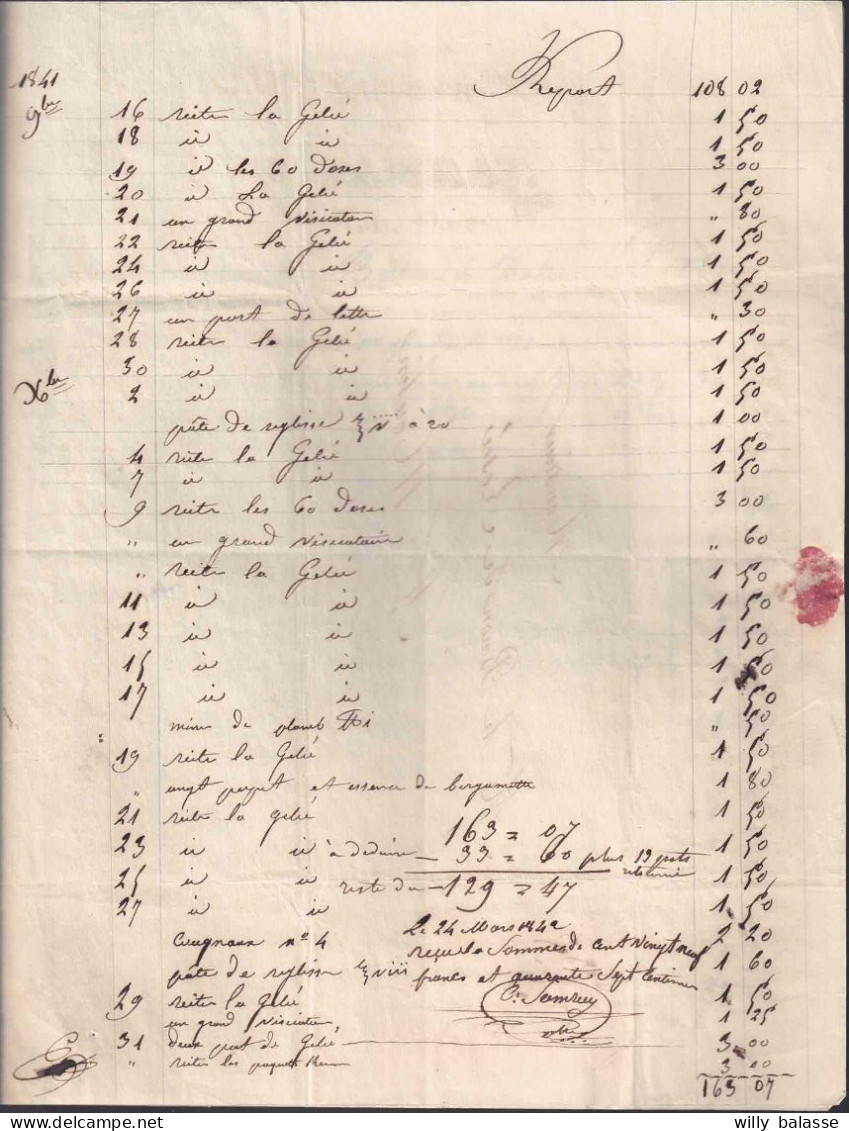 1841 Report 108 02
9bre 16 reiter la Gelée 1 50
18 id id 1 50
19 id les 60 doses 3 00
20 id La Gelée 1 50
21 un grand visicatoir " 80
22 reiter la Gelée 1 50
24 id id 1 50
26 id id 1 50
27 un port de lettre " 30
28 reiter la Gelée 1 50
30 id id 1 50
Xbre 2 id id 1 50
pâte de reglisse à 20 1 00
4 reiter la Gelée 1 50
7 id id 1 50
9 reiter les 60 doses 3 00
" un grand visicatoire " 60
" reiter la Gelée 1 50
11 id id 1 50
13 id id 1 50
15 id id 1 50
17 id id 1 50
mine de plomb " 50
19 reiter la Gelée 1 50
" et essence de bergamotte 1 80
21 reiter la gelée 1 50
163 = 07
23 id id à déduire — 33 = 60 plus 19 pots 1 50
retourné
25 id id reste du — 129 = 47 1 50
27 id id 1 50
Le 24 Mars 1842
n° 4 2 20
reçu la Somme de cent Vingt neuf
pâte de reglisse viii 1 60
francs et quarante Sept Centimes
29 reiter la gelée 1 50
un grand visicatoir 1 25
31 deux pot de Gelée 3 00
" reiter les paquets 3 00
163 07
willy balasse